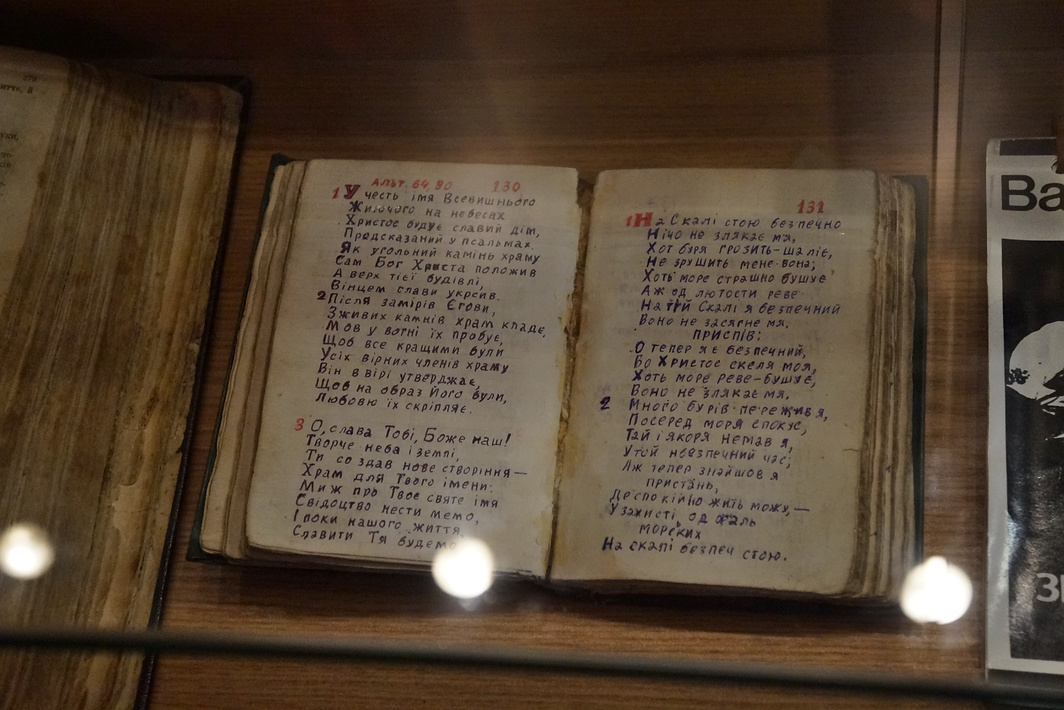 270
Альт. 64, 90 130
1 У честь імя Всевишнього
Живучого на небесах
Христос будує славий дім,
Предсказаний у псальмах.
Як угольний камінь храму
Сам Бог Христа положив
А верх тієї будівлі,
Вінцем слави укрсив.
2 Після замірів Єгови,
Зживих камнів храм кладе,
Мов у вогні їх пробує,
Щоб все кращими були
Усіх вірних членів храму
Він в вірі утверджає,
Щоб на образ Його були,
Любовю їх скріпляє.
3 О, слава Тобі, Боже наш!
Творче неба і землі,
Ти создав нове створіння—
Храм для Твого імени.
Миж про Твоє святе імя
Свідоцтво нести мемо,
І поки нашого життя,
Славити Тя будемо
131
1 На Скалі стою безпечно
Нічо не злякає мя,
Хот буря грозить-шаліє,
Не зрушить мене вона;
Хоть море страшно бушує
Аж од лютости реве
На тій Скалі я безпечний
Воно не засягне мя.
ПРИСПІВ:
О тепер я є безпечний,
Бо Христос скеля моя,
Хоть море реве-бушує,
Воно не злякає мя.
2 Много бурів пережив я,
Посеред моря спокус,
Тай і якоря немав я,
У той небезпечний час;
Аж тепер знайшов я
пристань,
Де спокійно жить можу,—
У захисті од халь
морских
На скалі безпеч стою.
Ва